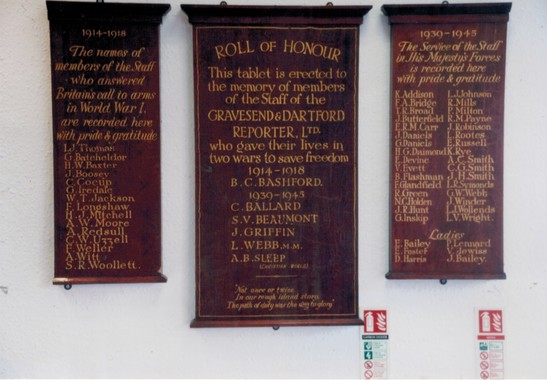 1914-1918
The names of
members of the Staff
who answered
Britain's call to arms
in World War I.
are recorded here
with pride & gratitude
L.J. Thomas
G. Batcheldor
H.W. Baxter
J. Boosey
C. Coctin
G. Iredale
W.T. Jackson
F. Longshaw
H.J. Mitchell
A.W. Moore
A. Redsull
C.W. Uzzell
F. Weller
A. Witt
S.R. Woollett.
ROLL OF HONOUR
This tablet is erected to
the memory of members
of the Staff of the
GRAVESEND & DARTFORD
REPORTER, LTD.
who gave their lives in
two wars to save freedom
1914-1918
B.C. BASHFORD.
1939-1945
C. BALLARD
S.V. BEAUMONT
J. GRIFFIN
L. WEBB M.M.
A.B. SLEEP
"Not once or twice
In our rough island story,
The path of duty was the way to glory"
1939-1945
The Service of the Staff
in His Majesty's Forces
is recorded here
with pride & gratitude
K. Addison
F.A. Bridge
F.R. Broad
J. Butterfield
E.R.M. Carr
J. Daniels
G. Daniels
H.G. Daimond
E. Devine
V. Evett
B. Flashman
F. Glandfield
R. Green
N.C. Holden
J.R. Hunt
G. Inskip
L. Johnson
R. Mills
P. Milton
R.M. Payne
J. Robinson
L. Rootes
E. Russell
K. Rye
A.C. Smith
C.G. Smith
J.H. Smith
L.R. Symonds
G.W. Webb
J. Winder
J. Wollends
L.V. Wright.
Ladies
E. Bailey
E. Foster
D. Harris
P. Lennard
V. Jewiss
J. Bailey.